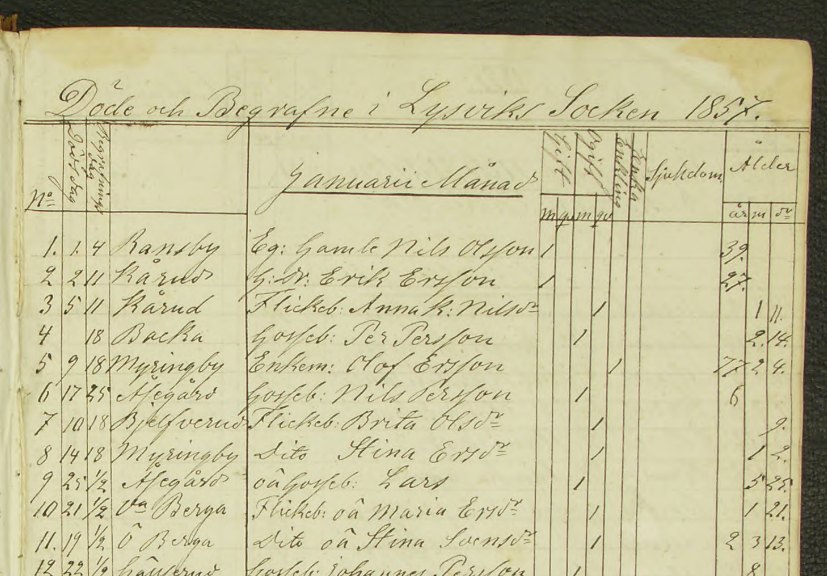 Döde och Begrafne i Lysviks Socken 1857.
No Dödsdag Begrafnings dag Januarii Månad Gift Ogift Enkling Enka Sjukdom. Ålder
m qv m qv år m dr
1. 1. 4 Ransby Eg: Gamle Nils Olsson 1 39.
2 2 11 Kårud H: Dr: Erik Ersson 1 27.
3 5 11 Kårud Flickeb: Anna K: Nilsdr 1 1 11.
4 18 Backa Gosseb: Per Persson 1 2. 14.
5 9 18 Myringby Enkem: Olof Ersson 1 77 2 4.
6 17 25 Åsegård Gosseb: Nils Persson 1 6
7 10 18 Bjelfverud Flickeb: Brita Olsdr 1 9.
8 14 18 Myringby Dito Stina Ersdr 1 1 2.
9 25 1/2 Åsegård oä Gosseb: Lars 1 5 25.
10 21 1/2 Berga Flickeb: oä Maria Ersdr 1 1 21.
11. 19 1/2 Ö Berga Dito oä Stina Svensdr 1 2 3 13.
12 22 1/2 Gosseb: Johannes Persson 1 8